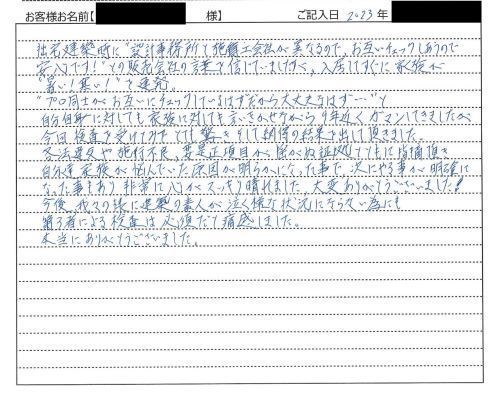 お客様お名前【 様】 ご記入日 2023年
住宅建築時に"設計事務所と施工会社が異なるので、お互いチェックしあうので
安心です!"との販売会社の言葉を信じていましたが、入居してすぐに家族が
"暑い!寒い!"を連発。
"プロ同士がお互いにチェックしているはずだから大丈夫なはず…"と
自分自身に対しても家族に対しても言いきかせながら 年近くガマンしてきましたが
今回検査を受けてみて とても驚き そして納得の結果を出して頂きました。
各法違反や施行不良、要是正項目が 証拠とともに指摘頂き
自分達家族が悩んでいた原因が明らかになった事で、次にやる事が明確に
なった事もあり 非常に心がスッキリ晴れました。大変ありがとうございました!
今後、我々の様に建築の素人が泣く様な状況にならない為にも
第3者による検査は必須だと痛感しました。
本当にありがとうございました。